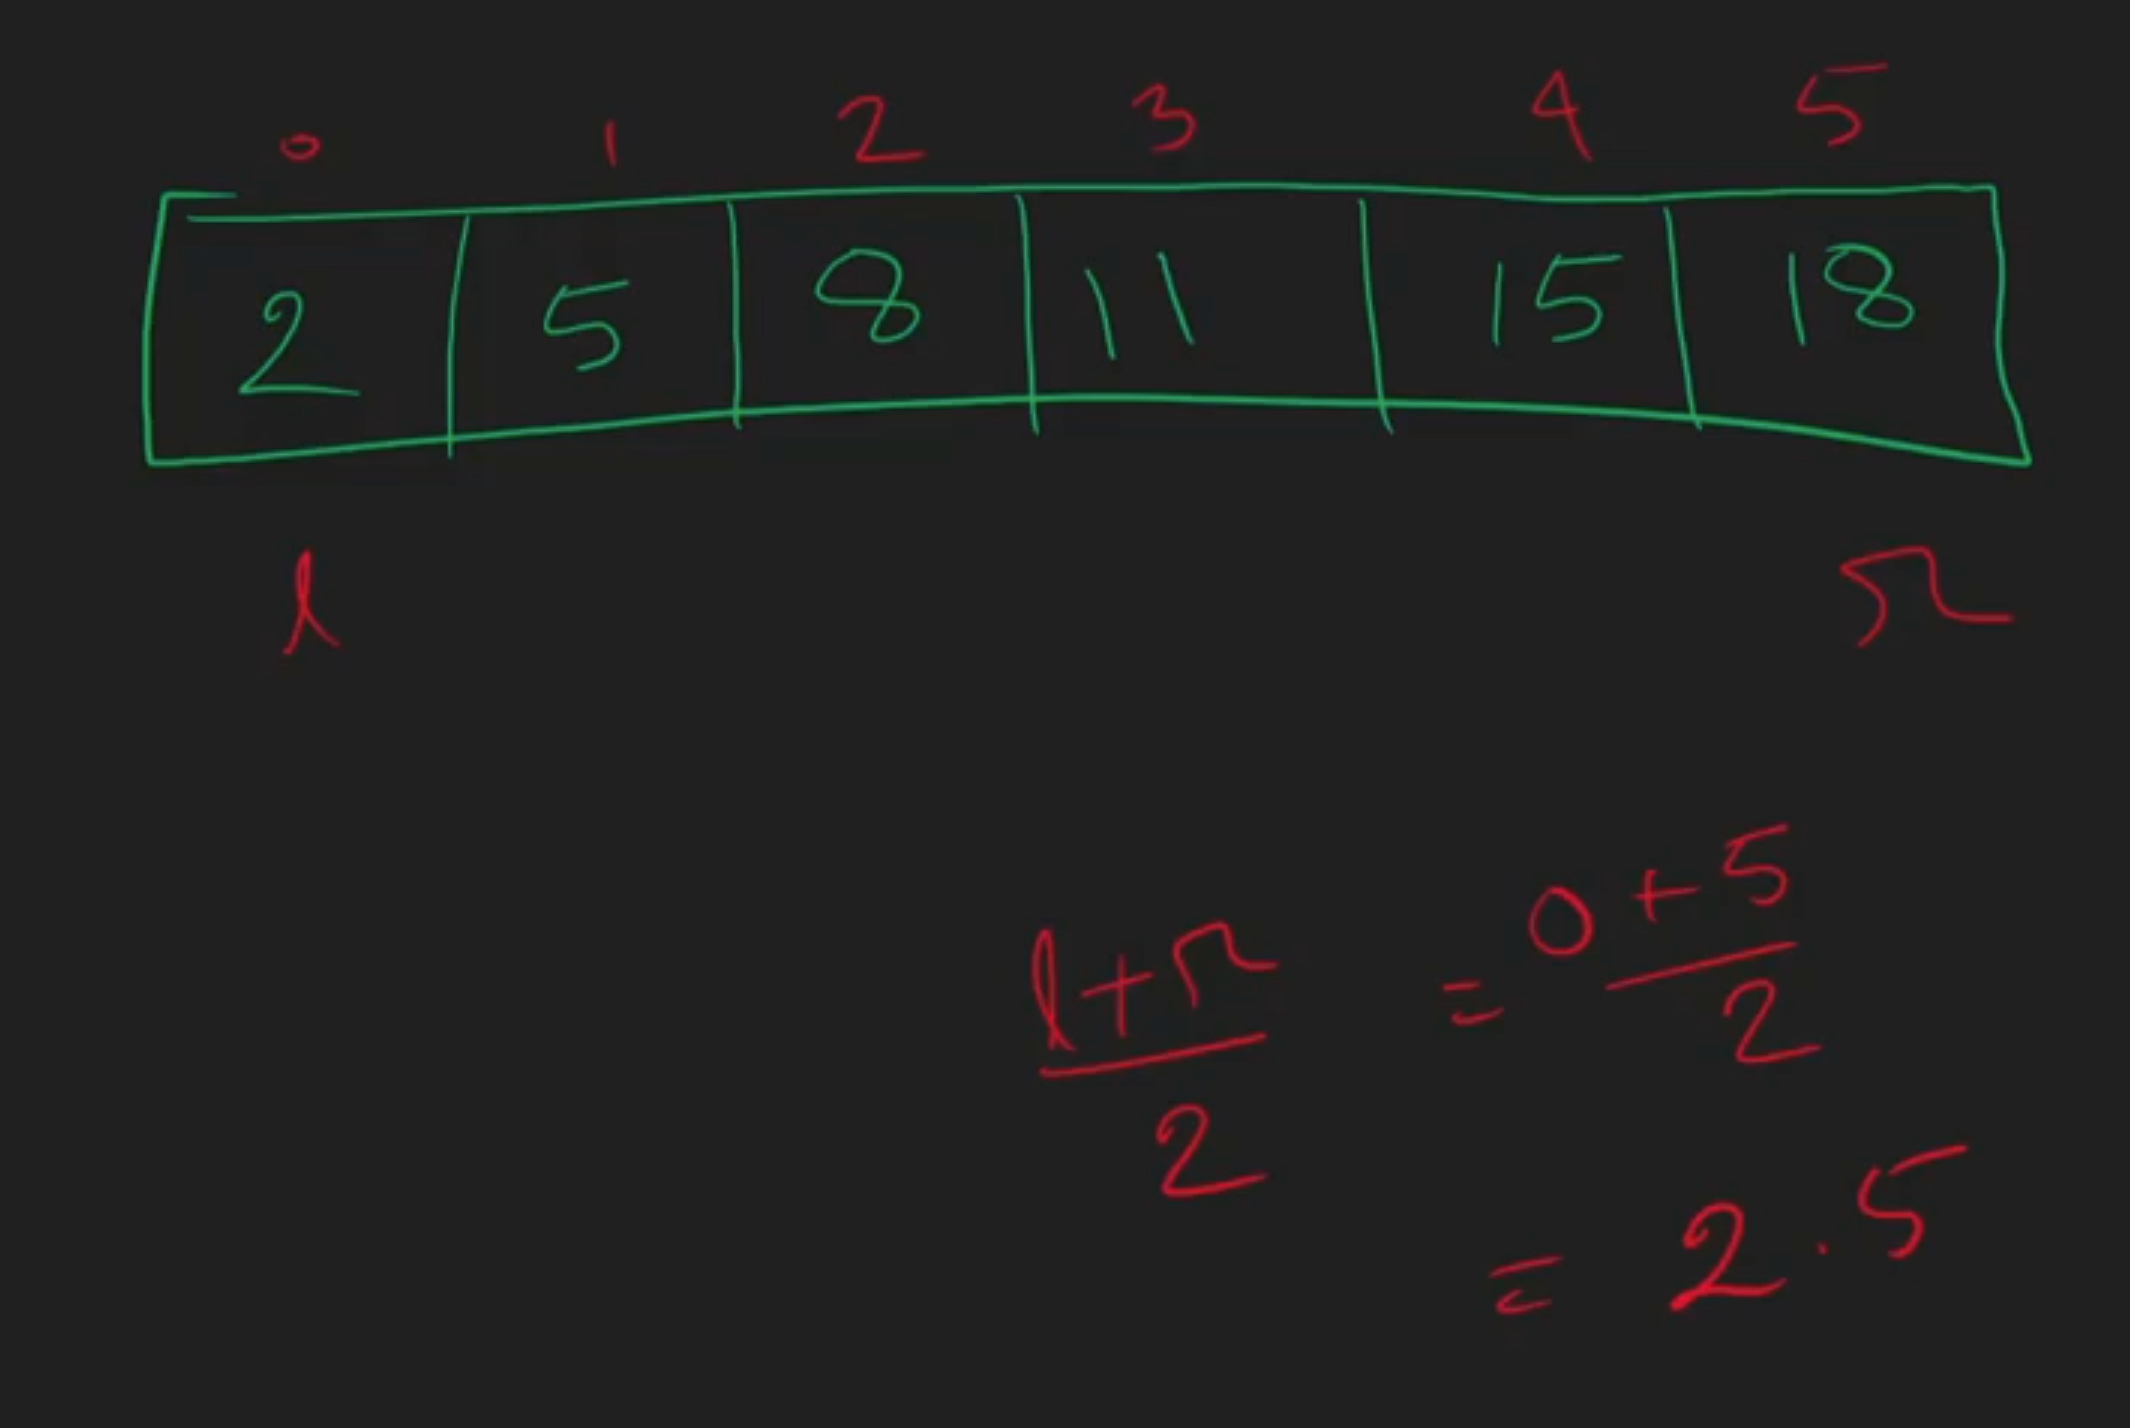 0 1 2 3 4 5
2 5 8 11 15 18
l r
l+r/2 = 0+5/2
= 2.5